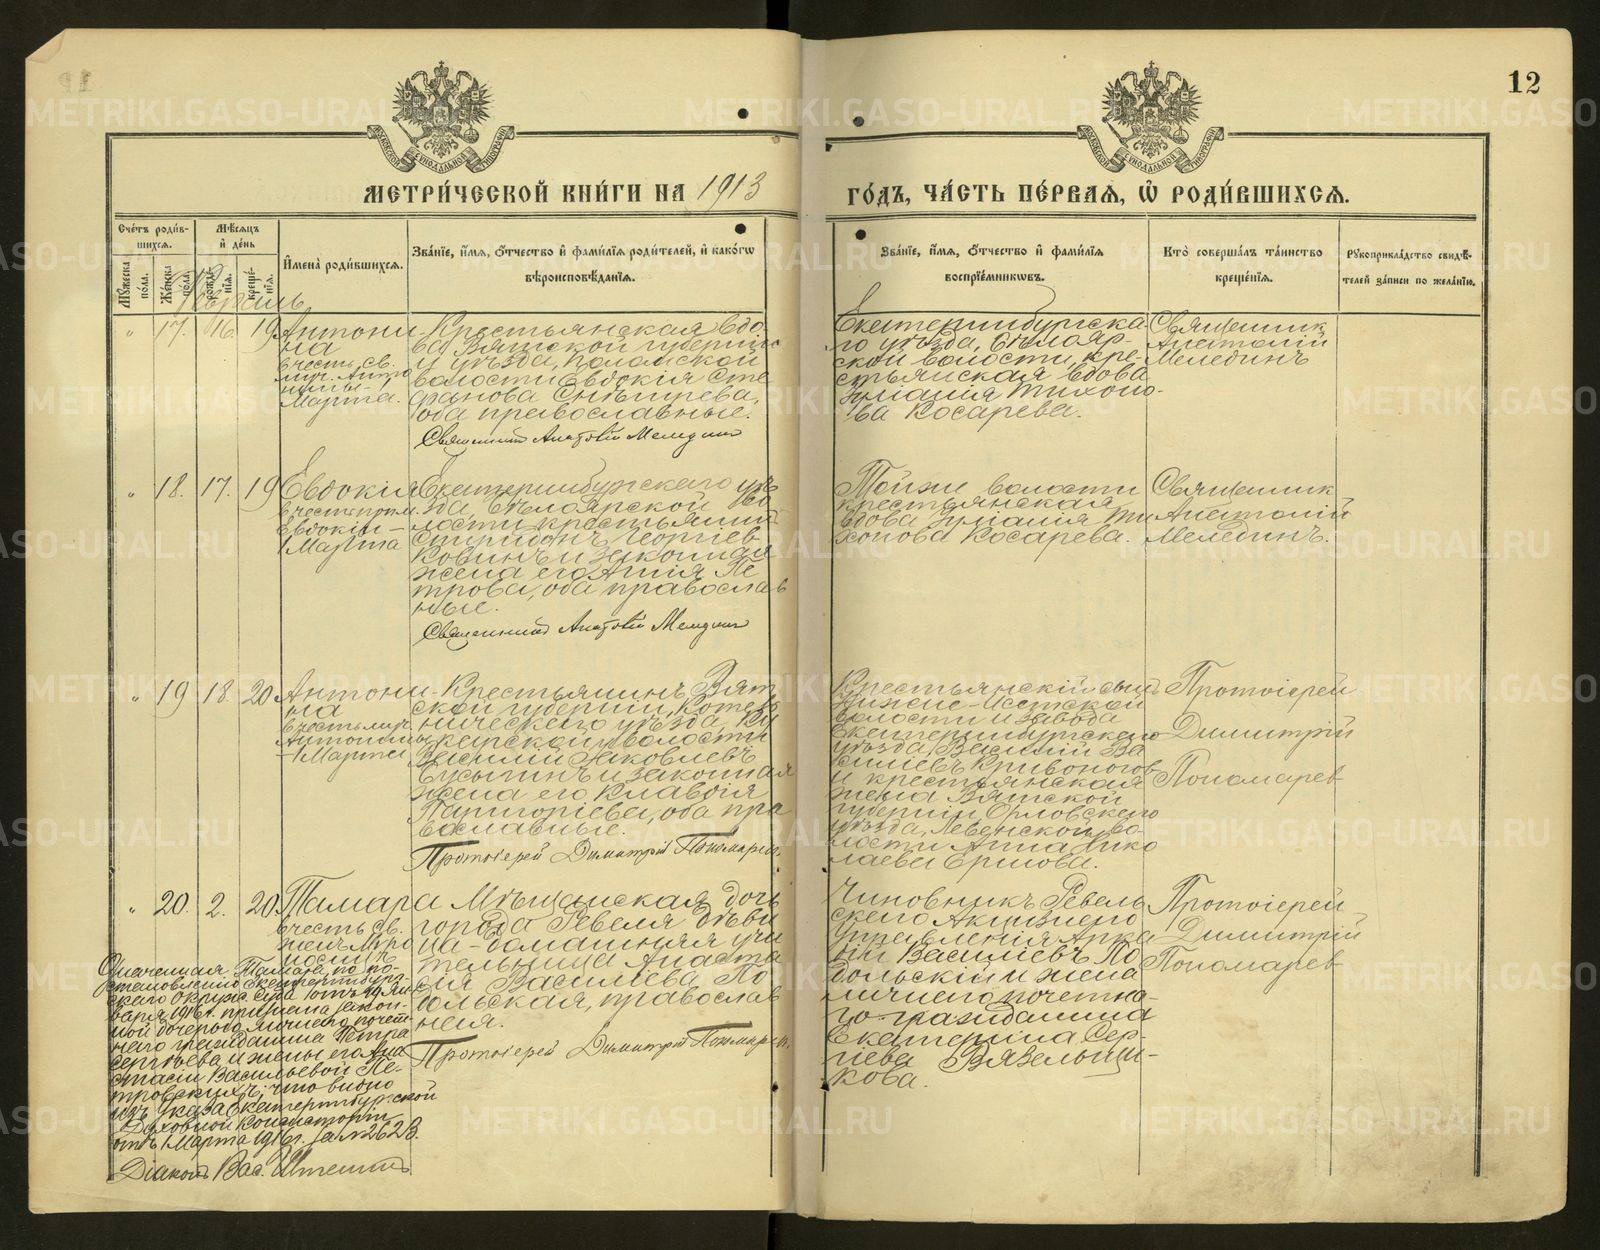 12
МЕТРИ́ЧЕСКОЙ КНИ́ГИ НА 1913
ГО́ДЪ, ЧА́СТЬ ПЕ́РВАѦ, Ѡ҆ РОДИ́ВШИХСѦ.
Сче́тъ роди́в-
шихсѧ.
Мѣ́сѧцъ
и҆ де́нь
Мꙋ́жеска по́ла.
Же́нска по́ла.
рожде́-
нїѧ.
креще́-
нїѧ.
И҆мена̀ роди́вшихсѧ.
Зва́нїе, и҆́мѧ, ѻ҆́тчество и҆ фами́лїѧ роди́телей, и҆ како́гѡ
вѣроисповѣ́данїѧ.
Зва́нїе, и҆́мѧ, ѻ҆́тчество и҆ фами́лїѧ
воспрїе́мникѡвъ.
Кто̀ соверша́лъ та́инство
креще́нїѧ.
Рꙋкоприкла́дство свидѣ́-
телей за́писи по жела́нїю.
Февраль
" 17. 16. 19
Антони-
на
в честь св.
муч. Анто
нины-1
Марта.
Крестьянская вдо
ва Вятской губернiи
и уѣзда, Поломской
волости Евдокiя Сте
фанова Снѣгирева,
оба православные.
Священникъ Анатолiй Мелединъ
Екатеринбургска
го уѣзда, Бѣлояр-
ской волости, кре-
стьянская вдова
Iулiанiя Тихоно-
ва Косарева.
Священник
Анатолiй
Мелединъ
" 18. 17. 19
Евдокiя
в честь прпм.
Евдокiи -
1 Марта
Екатеринбургскаго уѣ
зда, Бѣлоярской во
лости крестьянинъ
Спиридонъ Георгiев
Ковинъ и законная
жена его Аннiя Пе
трова, оба православ
ные.
Священникъ Анатолiй Мелединъ
Тойже волости
крестьянская
вдова Iулiанiя Ти
хонова Косарева.
Священник
Анатолiй
Мелединъ.
" 19 18. 20
Антони-
на
в честь муч.
Антонины
1 Марта
Крестьянинъ Вят
ской губернiи, Котель
ническаго уѣзда,
волости
Василiй Яковлевъ
и законная
жена его Клавдiя
Григорiева, оба пра
вославные.
Протоiерей Димитрiй Пономаревъ.
Крестьянскiй сын
Нижне-Исетской
волости и завода
Екатеринбургскаго
уѣзда Василiй Ва
силiевъ Кривоногов
и крестьянская
жена Вятской
губернiи Орловскаго
уѣзда, Левенской во
лости Анна Нико
лаева Ершова.
Протоiерей
Димитрiй
Пономарев
" 20. 2. 20
Тамара
в честь св.
женъ Мѵро
носицъ
Мѣщанская дочь
города Ревеля дѣви
ца - домашняя учи
тельница Анаста
сiя Василiева По
дольская, православ
ная.
Протоiерей Димитрiй Пономаревъ.
Чиновникъ Ревель
скаго Акцизнаго
Управленiя Арка
дiй Василiевъ По
дольскiй и жена
личнаго почетна-
го гражданина
Екатерина Сер-
гiева Вязельщи-
кова.
Протоiерей
Димитрiй
Пономарев
Означенная Тамара, по по-
становленiю Екатеринбург-
скаго Окруж. Суда отъ 19 Ян-
варя 1916 г. признана закон-
ной дочерью личнаго почет-
наго гражданина Петра
Сергѣева и жены его Ана
стасiи Васильевой Пе-
тровскихъ, что видно
изъ указа Екатеринбургской
Духовной Консисторiи
отъ 1 Марта 1916 г. за № 2623.
Дiаконъ Вас.